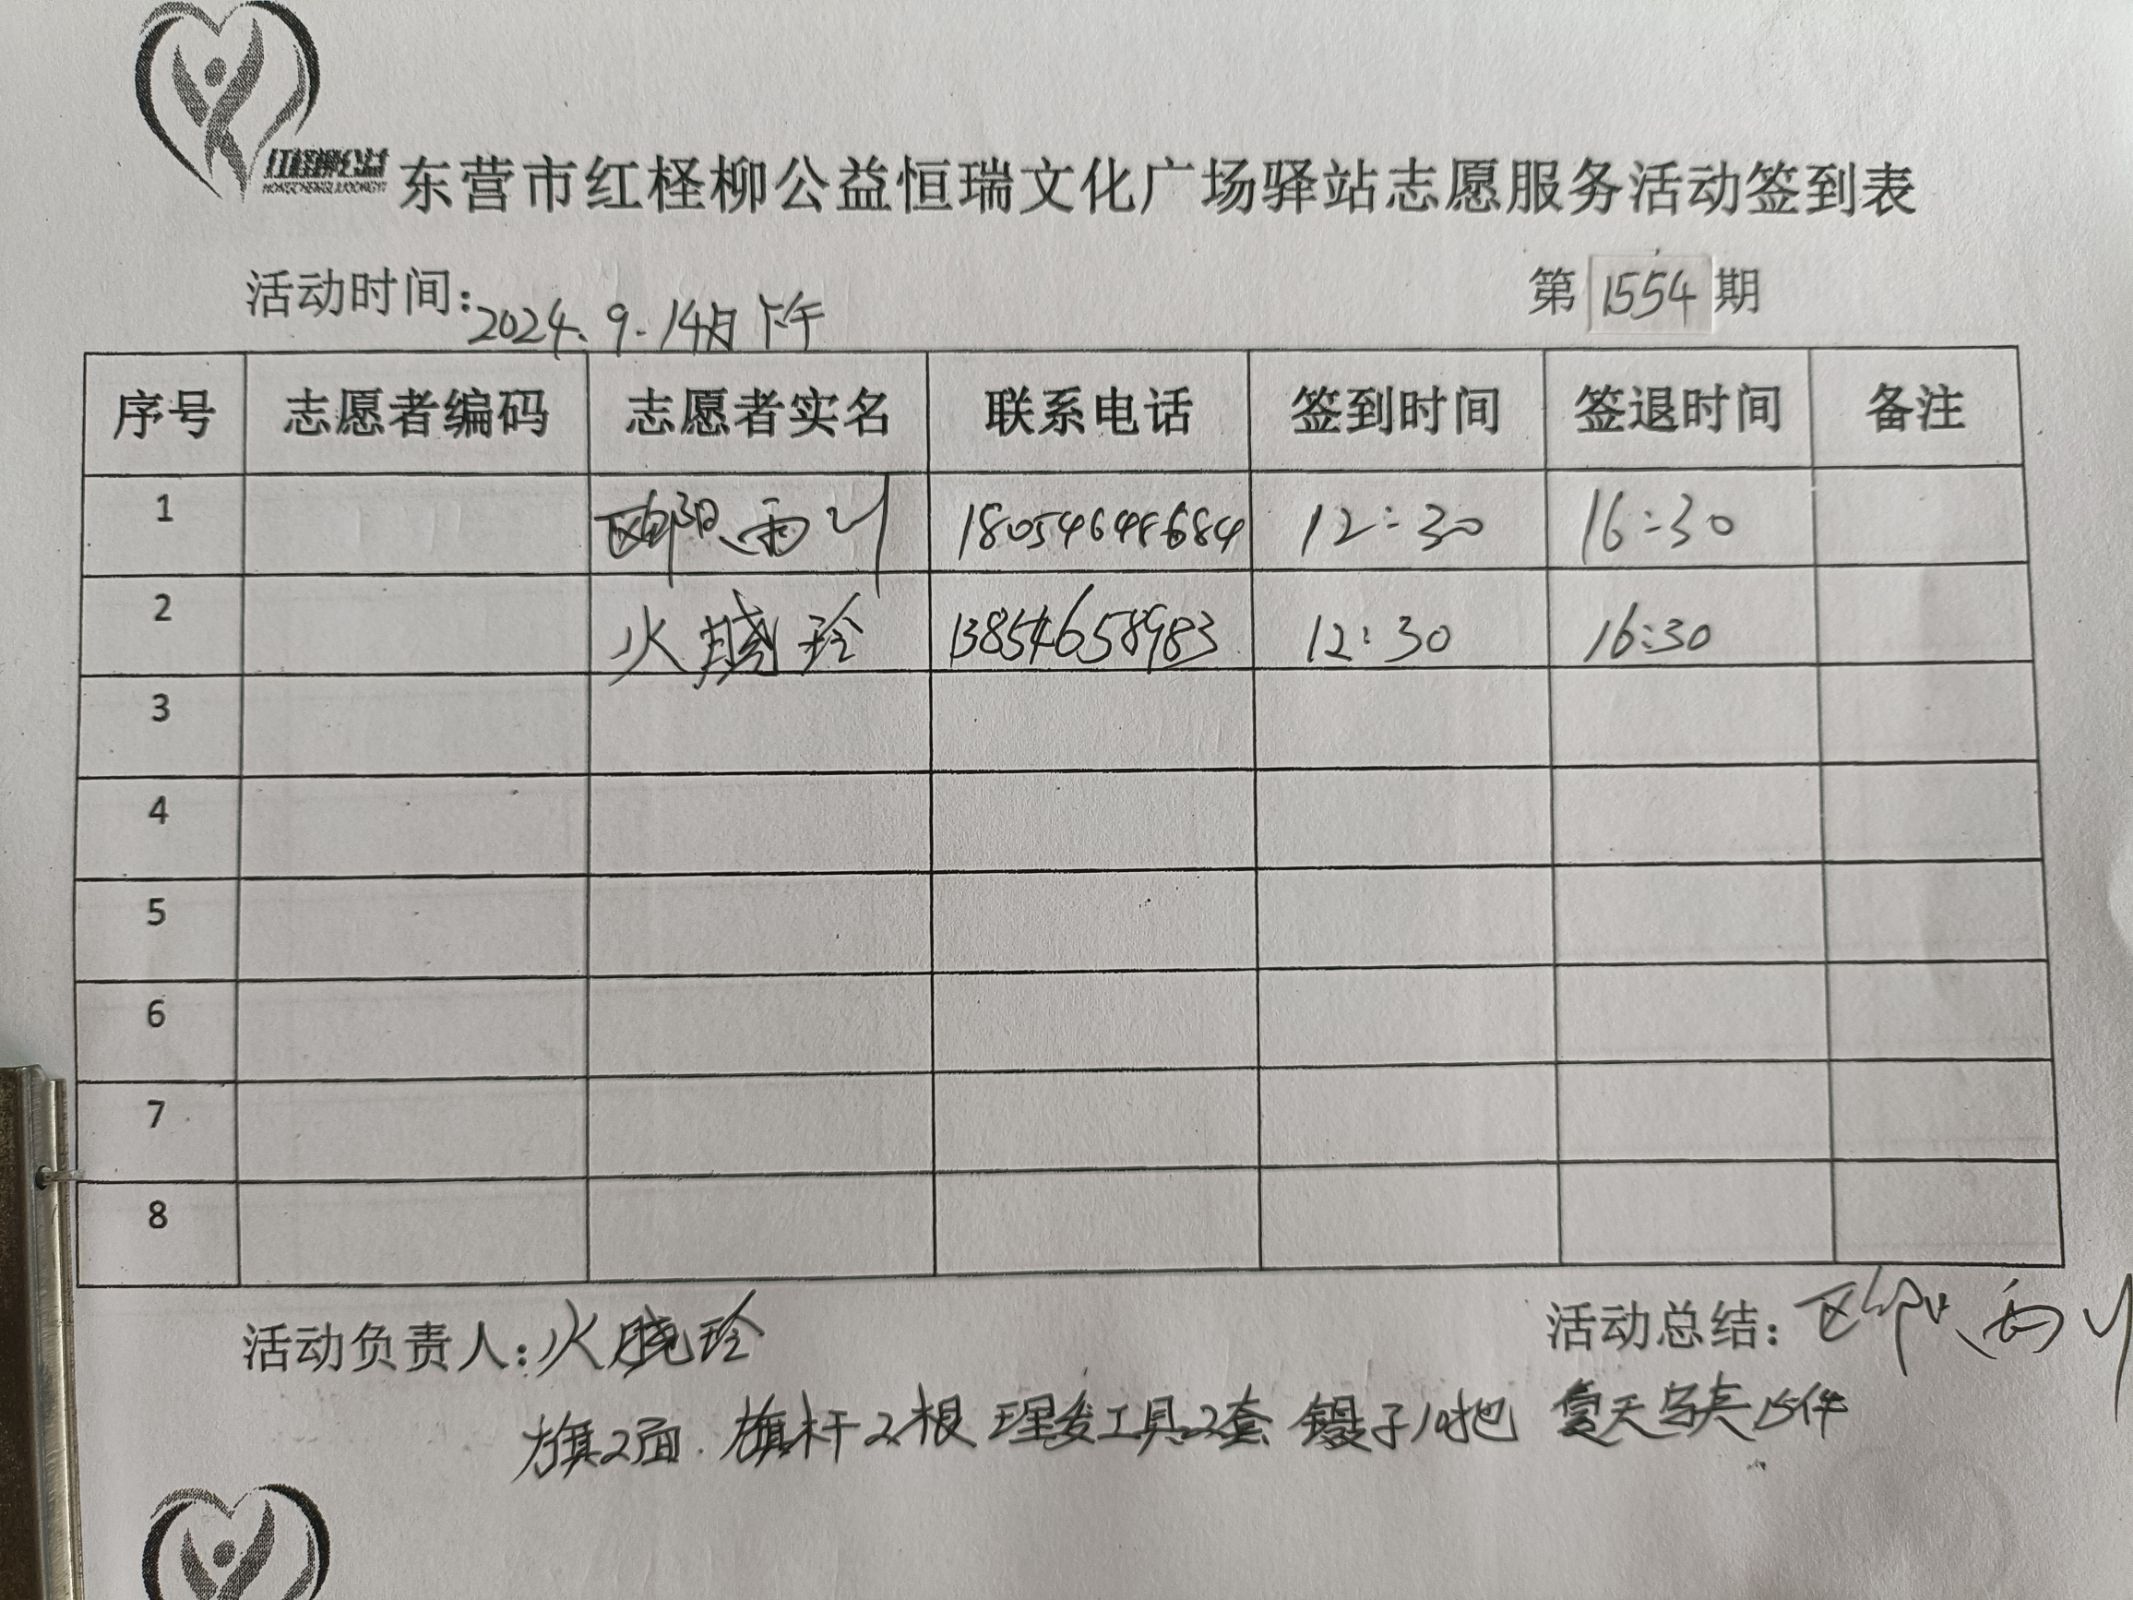 红柽柳公益
HONGCHENGLIUGONGYI
东营市红柽柳公益恒瑞文化广场驿站志愿服务活动签到表
活动时间：2024.9.14日下午 第1554期
序号 志愿者编码 志愿者实名 联系电话 签到时间 签退时间 备注
1 欧阳西川 12:30 16:30
2 火晓玲 13854658983 12:30 16:30
3
4
5
6
7
8
活动负责人：火晓玲 活动总结：欧阳西川
旗2面.旗杆2根 理发工具2套 镊子10把 夏天马夹15件